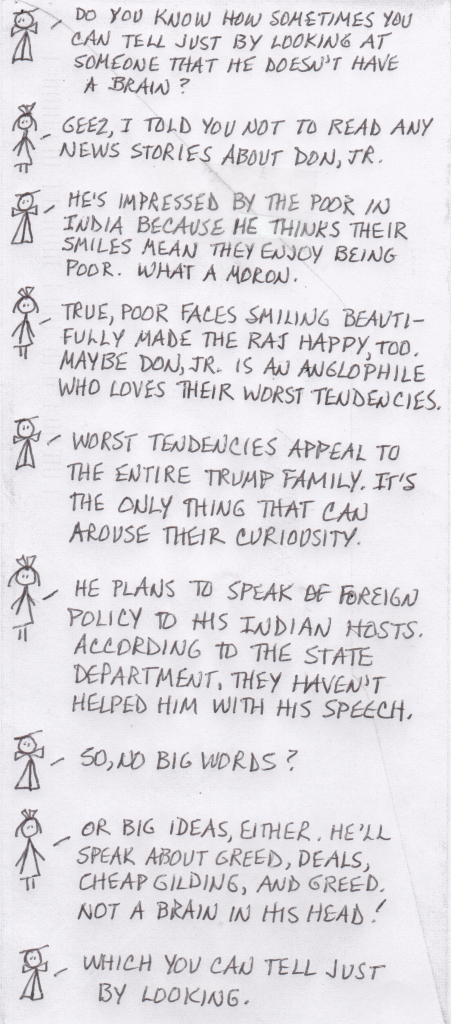 DO YOU KNOW HOW SOMETIMES YOU
CAN TELL JUST BY LOOKING AT
SOMEONE THAT HE DOESN'T HAVE
A BRAIN?
GEEZ, I TOLD YOU NOT TO READ ANY
NEWS STORIES ABOUT DON, JR.
HE'S IMPRESSED BY THE POOR IN
INDIA BECAUSE HE THINKS THEIR
SMILES MEAN THEY ENJOY BEING
POOR. WHAT A MORON.
TRUE, POOR FACES SMILING BEAUTI-
FULLY MADE THE RAJ HAPPY, TOO.
MAYBE DON, JR. IS AN ANGLOPHILE
WHO LOVES THEIR WORST TENDENCIES.
WORST TENDENCIES APPEAL TO
THE ENTIRE TRUMP FAMILY. IT'S
THE ONLY THING THAT CAN
AROUSE THEIR CURIOUSITY.
HE PLANS TO SPEAK OF FOREIGN
POLICY TO HIS INDIAN HOSTS.
ACCORDING TO THE STATE
DEPARTMENT, THEY HAVEN'T
HELPED HIM WITH HIS SPEECH.
SO, NO BIG WORDS?
OR BIG IDEAS, EITHER. HE'LL
SPEAK ABOUT GREED, DEALS,
CHEAP GILDING, AND GREED.
NOT A BRAIN IN HIS HEAD!
WHICH YOU CAN TELL JUST
BY LOOKING.